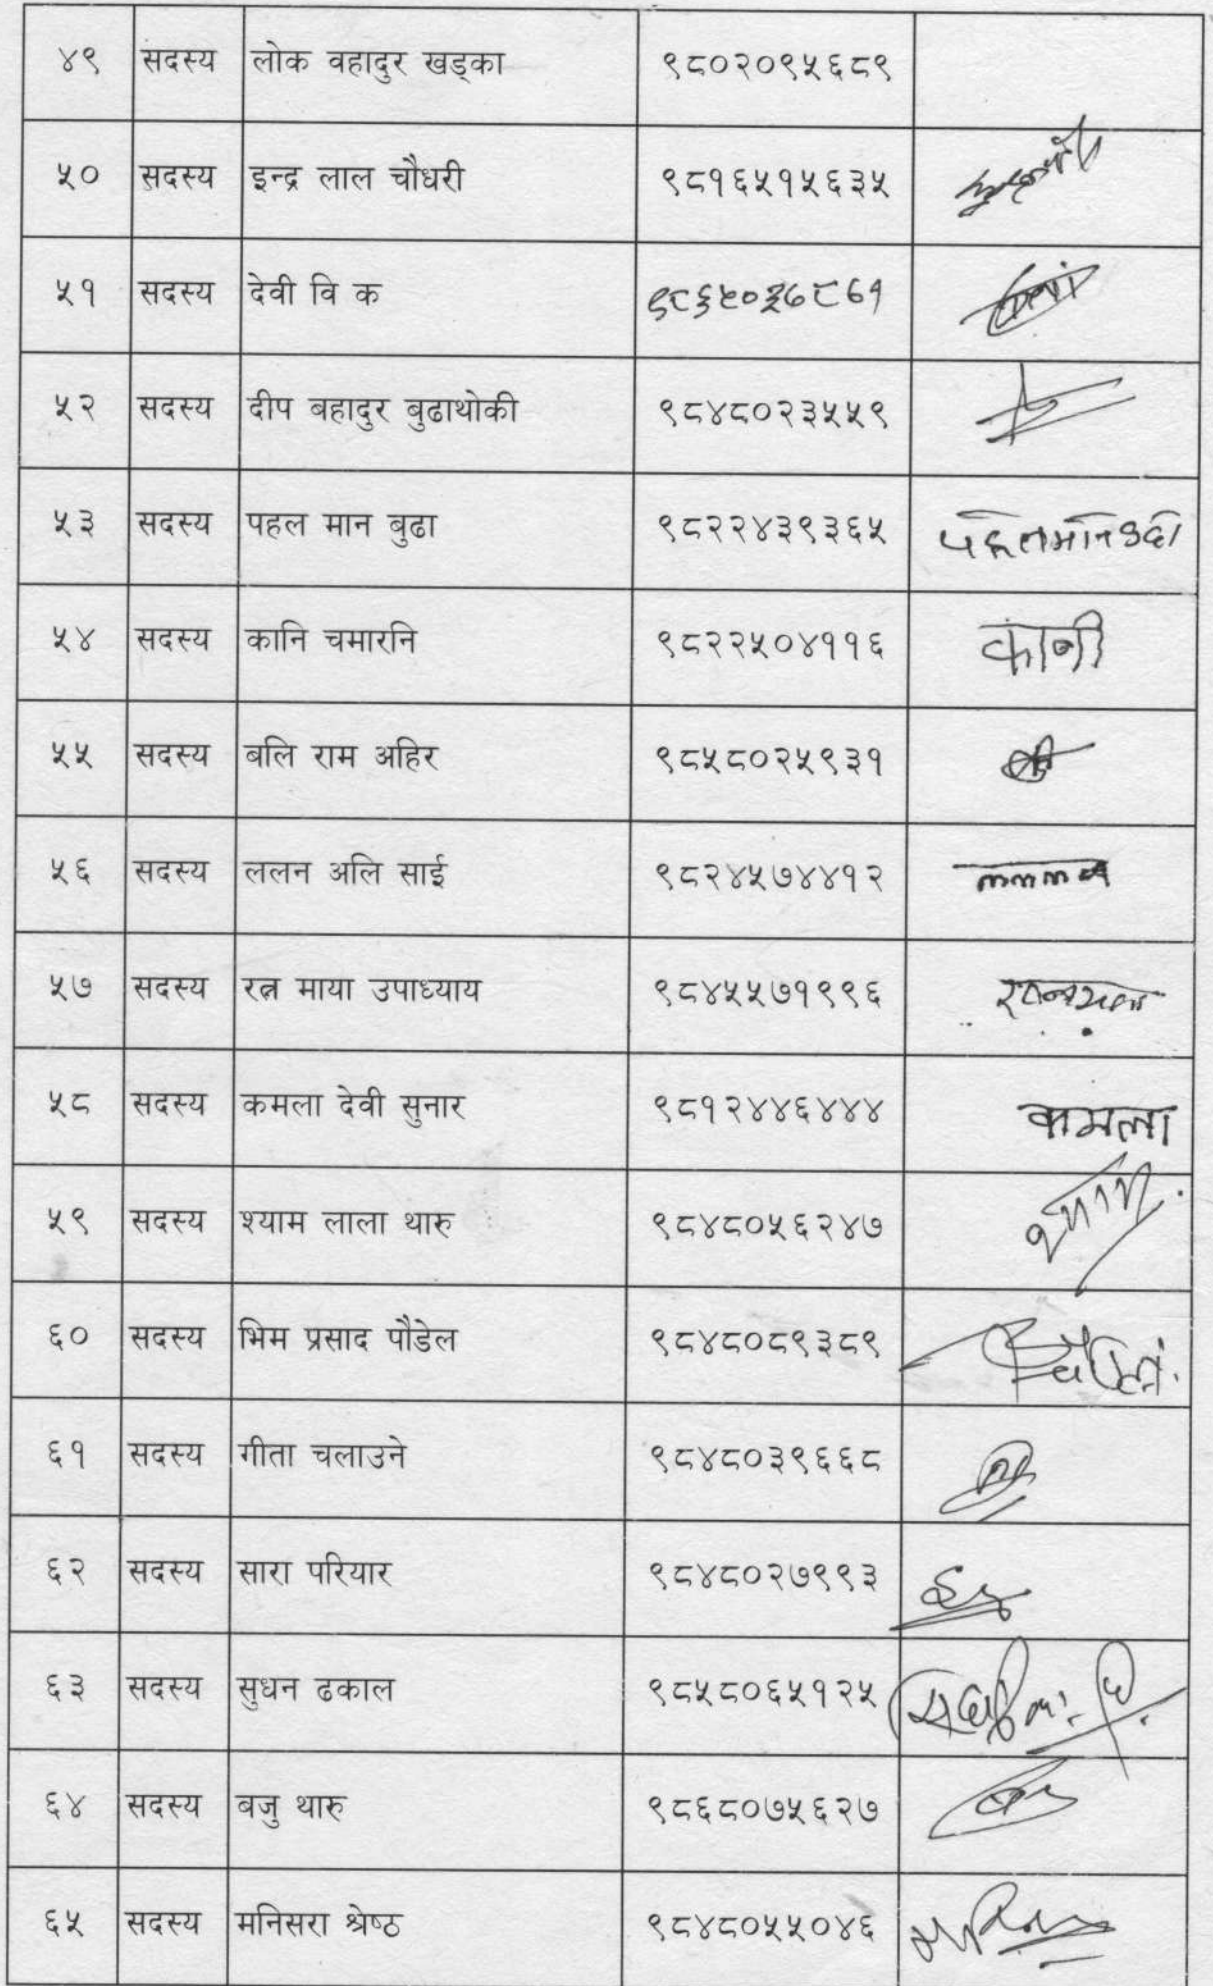 ४९ सदस्य लोक वहादुर खड्का ९८०२०९५६८९
५० सदस्य इन्द्र लाल चौधरी ९८१६५१५६३५
५१ सदस्य देवी वि क
५२ सदस्य दीप बहादुर बुढाथोकी ९८४८०२३५५९
५३ सदस्य पहल मान बुढा ९८२२४३९३६५
५४ सदस्य कानि चमारनि ९८२२५०४११६ कानी
५५ सदस्य बलि राम अहिर ९८५८०२५९३१
५६ सदस्य ललन अलि साई ९८२४५७४४१२
५७ सदस्य रत्न माया उपाध्याय ९८४५५७१९९६
५८ सदस्य कमला देवी सुनार ९८१२४४६४४४ कमला
५९ सदस्य श्याम लाला थारु ९८४८०५६२४७
६० सदस्य भिम प्रसाद पौडेल ९८४८०८९३८९
६१ सदस्य गीता चलाउने ९८४८०३९६६८
६२ सदस्य सारा परियार ९८४८०२७९९३
६३ सदस्य सुधन ढकाल ९८५८०६५१२५
६४ सदस्य बजु थारु ९८६८०७५६२७
६५ सदस्य मनिसरा श्रेष्ठ ९८४८०५५०४६